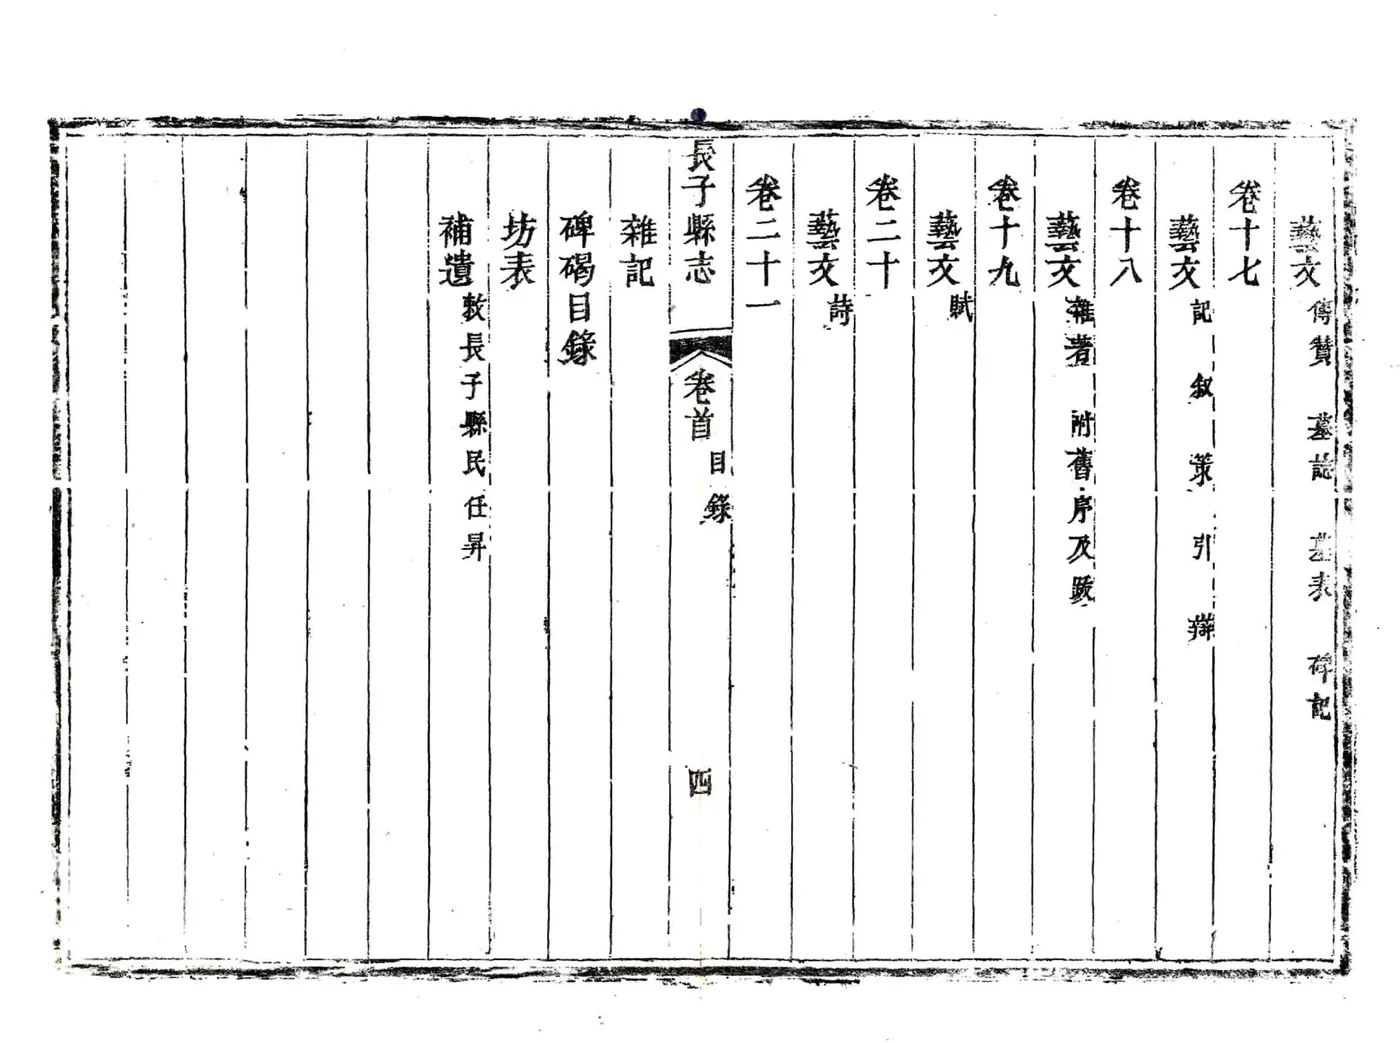 藝文 傳贊 墓誌 墓表 碑記
卷十七
藝文 記 叙 策 引 辯
卷十八
藝文 雜著 附舊序及跋
卷十九
藝文 賦
卷二十
藝文 詩
卷二十一
長子縣志 卷首 目錄 四
雜記
碑碣目錄
坊表
補遺 敕長子縣民任昇